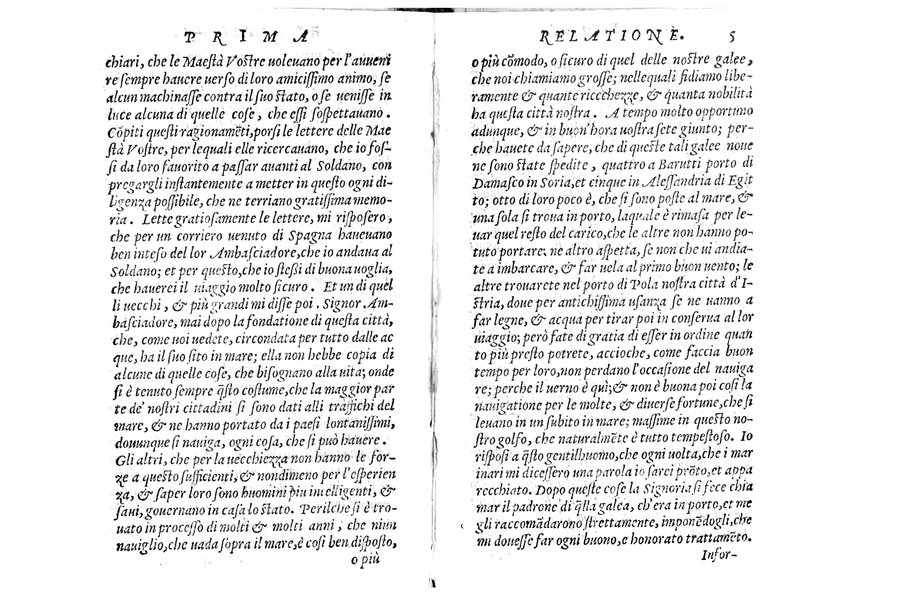 PRIMA
chiari, che le Maestà Vostre uoleuano per l'auueni
re sempre hauere uerso di loro amicissimo animo, se
alcun machinasse contra il suo stato, o se uenisse in
luce alcuna di quelle cose, che essi sospettauano.
Cōpiti questi ragionamēti, porsi le lettere delle Mae
stà Vostre, per lequali elle ricercauano, che io fos-
si da loro fauorito a passar auanti al Soldano, con
pregargli instantemente a metter in questo ogni di-
ligenza possibile, che ne terriano gratissima memo-
ria. Lette gratiosamente le lettere, mi risposero,
che per un corriero uenuto di Spagna haueuano
ben inteso del lor Ambasciadore, che io andaua al
Soldano; et per questo, che io stessi di buona uoglia,
che hauerei il uiaggio molto sicuro. Et un di quel
li uecchi, & più grandi mi disse poi. Signor Am-
basciadore, mai dopo la fondatione di questa città,
che, come uoi uedete, circondata per tutto dalle ac
que, ha il suo sito in mare; ella non hebbe copia di
alcune di quelle cose, che bisognano alla uita; onde
si è tenuto sempre q̄sto costume, che la maggior par
te de' nostri cittadini si sono dati alli traffichi del
mare, & ne hanno portato da i paesi lontanissimi,
douunque si nauiga, ogni cosa, che si può hauere.
Gli altri, che per la uecchiezza non hanno le for-
ze a questo sufficienti, & nondimeno per l'esperien
za, & saper loro sono huomini piu intelligenti, &
saui, gouernano in casa lo stato. Perilche si è tro-
uato in processo di molti & molti anni, che niun
nauiglio, che uada sopra il mare, è cosi ben disposto,
o più
RELATIONE. 5
o più cōmodo, o sicuro di quel delle nostre galee,
che noi chiamiamo grosse; nellequali fidiamo libe-
ramente & quante ricchezze, & quanta nobilità
ha questa città nostra. A tempo molto opportuno
adunque, & in buon'hora uostra sete giunto; per-
che hauete da sapere, che di queste tali galee noue
ne sono state spedite, quattro a Barutti porto di
Damasco in Soria, et cinque in Alessandria di Egit
to; otto di loro poco è, che si sono poste al mare, &
una sola si troua in porto, laquale è rimasa per le-
uar quel resto del carico, che le altre non hanno po-
tuto portare. ne altro aspetta, se non che ui andia-
te a imbarcare, & far uela al primo buon uento; le
altre trouarete nel porto di Pola nostra città d'I-
stria, doue per antichissima usanza se ne uanno a
far legne, & acqua per tirar poi in conserua al lor
uiaggio; però fate di gratia di esser in ordine quan
to più presto potrete, accioche, come faccia buon
tempo per loro, non perdano l'occasione del nauiga
re; perche il uerno è quì; & non è buona poi cosi la
nauigatione per le molte, & diuerse fortune, che si
leuano in un subito in mare; massime in questo no-
stro golfo, che naturalmēte è tutto tempestoso. Io
risposi a q̄sto gentilhuomo, che ogni uolta, che i mar
inari mi dicessero una parola io sarei prōto, et appa
recchiato. Dopo queste cose la Signoria si fece chia
mar il padrone di q̄lla galea, ch'era in porto, et me
gli raccomādarono strettamente, imponēdogli, che
mi douesse far ogni buono, e honorato trattamēto.
Infor-